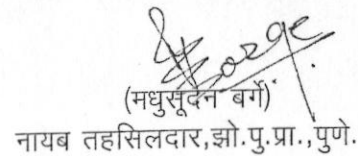 (मधुसूदन बर्गे)
नायब तहसिलदार,झो.पु.प्रा.,पुणे.